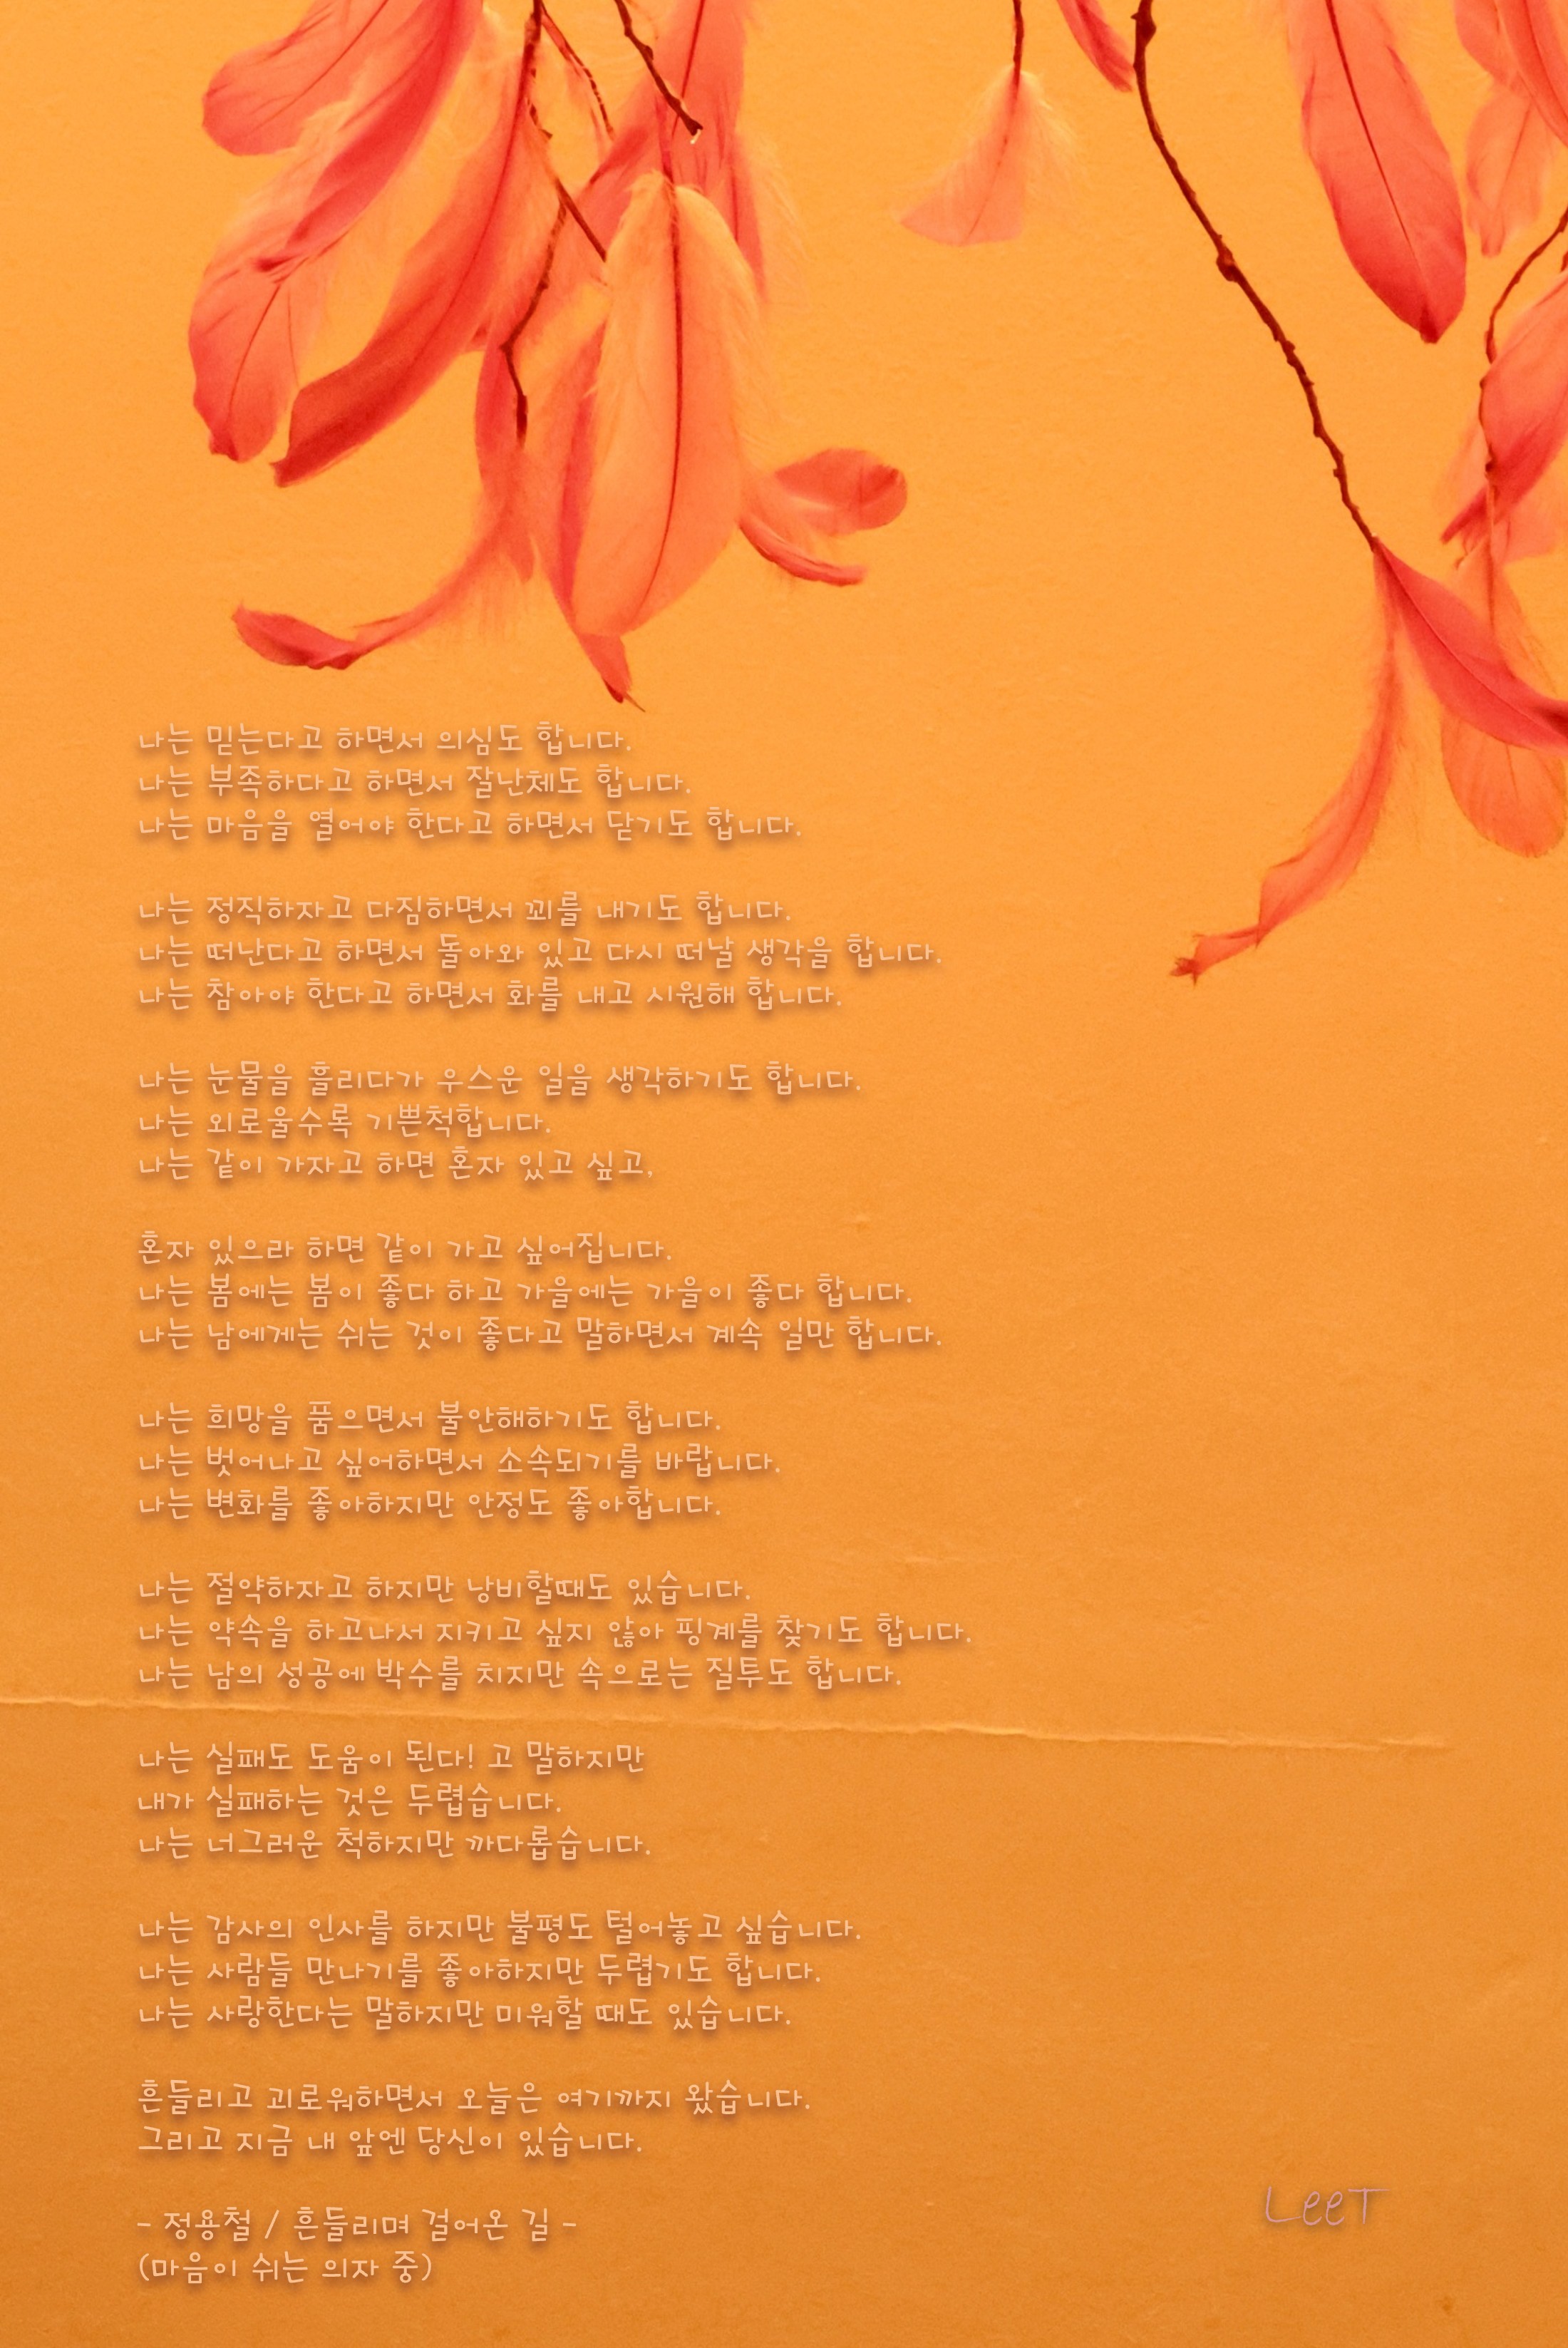 나는 믿는다고 하면서 의심도 합니다.
나는 부족하다고 하면서 잘난체도 합니다.
나는 마음을 열어야 한다고 하면서 닫기도 합니다.
나는 정직하자고 다짐하면서 꾀를 내기도 합니다.
나는 떠난다고 하면서 돌아와 있고 다시 떠날 생각을 합니다.
나는 참아야 한다고 하면서 화를 내고 시원해 합니다.
나는 눈물을 흘리다가 우스운 일을 생각하기도 합니다.
나는 외로울수록 기쁜척합니다.
나는 같이 가자고 하면 혼자 있고 싶고,
혼자 있으라 하면 같이 가고 싶어집니다.
나는 봄에는 봄이 좋다 하고 가을에는 가을이 좋다 합니다.
나는 남에게는 쉬는 것이 좋다고 말하면서 계속 일만 합니다.
나는 희망을 품으면서 불안해하기도 합니다.
나는 벗어나고 싶어하면서 소속되기를 바랍니다.
나는 변화를 좋아하지만 안정도 좋아합니다.
나는 절약하자고 하지만 낭비할때도 있습니다.
나는 약속을 하고나서 지키고 싶지 않아 핑계를 찾기도 합니다.
나는 남의 성공에 박수를 치지만 속으로는 질투도 합니다.
나는 실패도 도움이 된다! 고 말하지만
내가 실패하는 것은 두렵습니다.
나는 너그러운 척하지만 까다롭습니다.
나는 감사의 인사를 하지만 불평도 털어놓고 싶습니다.
나는 사람들 만나기를 좋아하지만 두렵기도 합니다.
나는 사랑한다는 말하지만 미워할 때도 있습니다.
흔들리고 괴로워하면서 오늘은 여기까지 왔습니다.
그리고 지금 내 앞엔 당신이 있습니다.
- 정용철 / 흔들리며 걸어온 길 -
(마음이 쉬는 의자 중)
LeeT